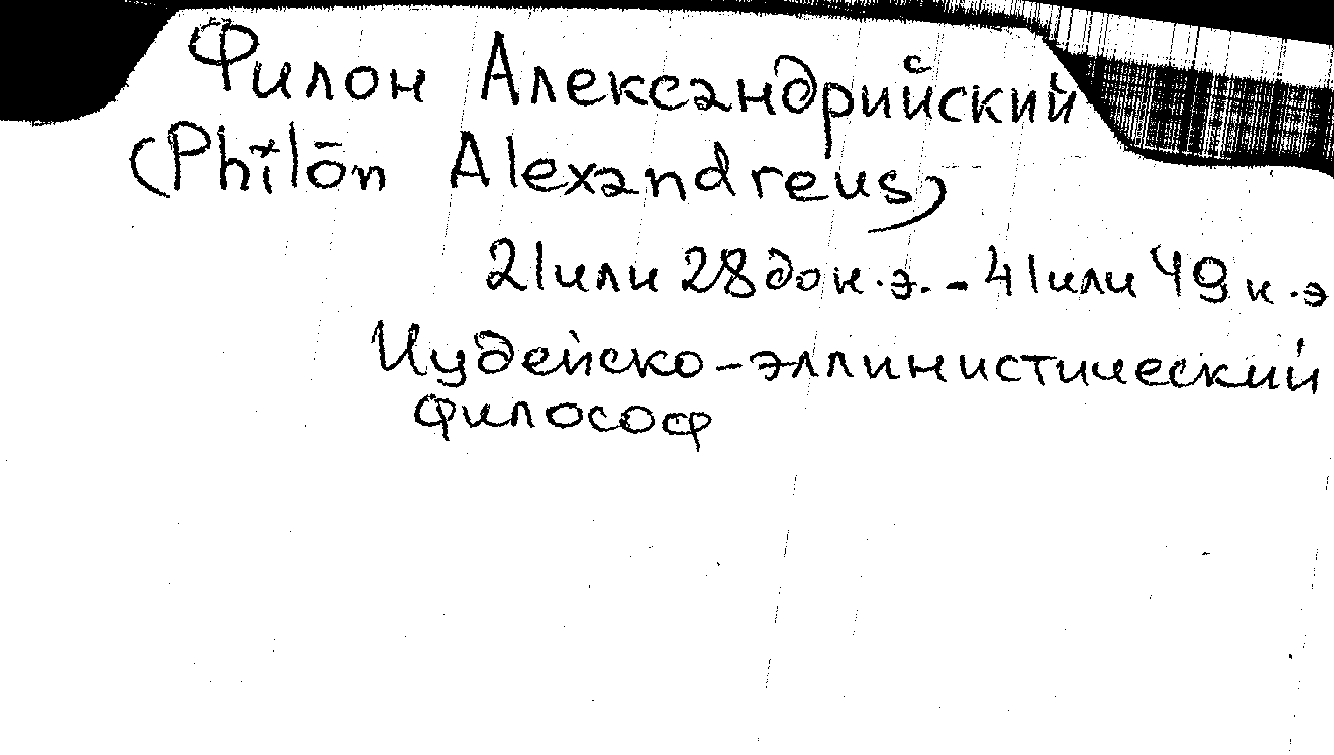 Филон Александрийский
(Philōn Alexandreus)
21 или 28 до н.э. - 41 или 49 н.э
Иудейско-эллинистический
философ